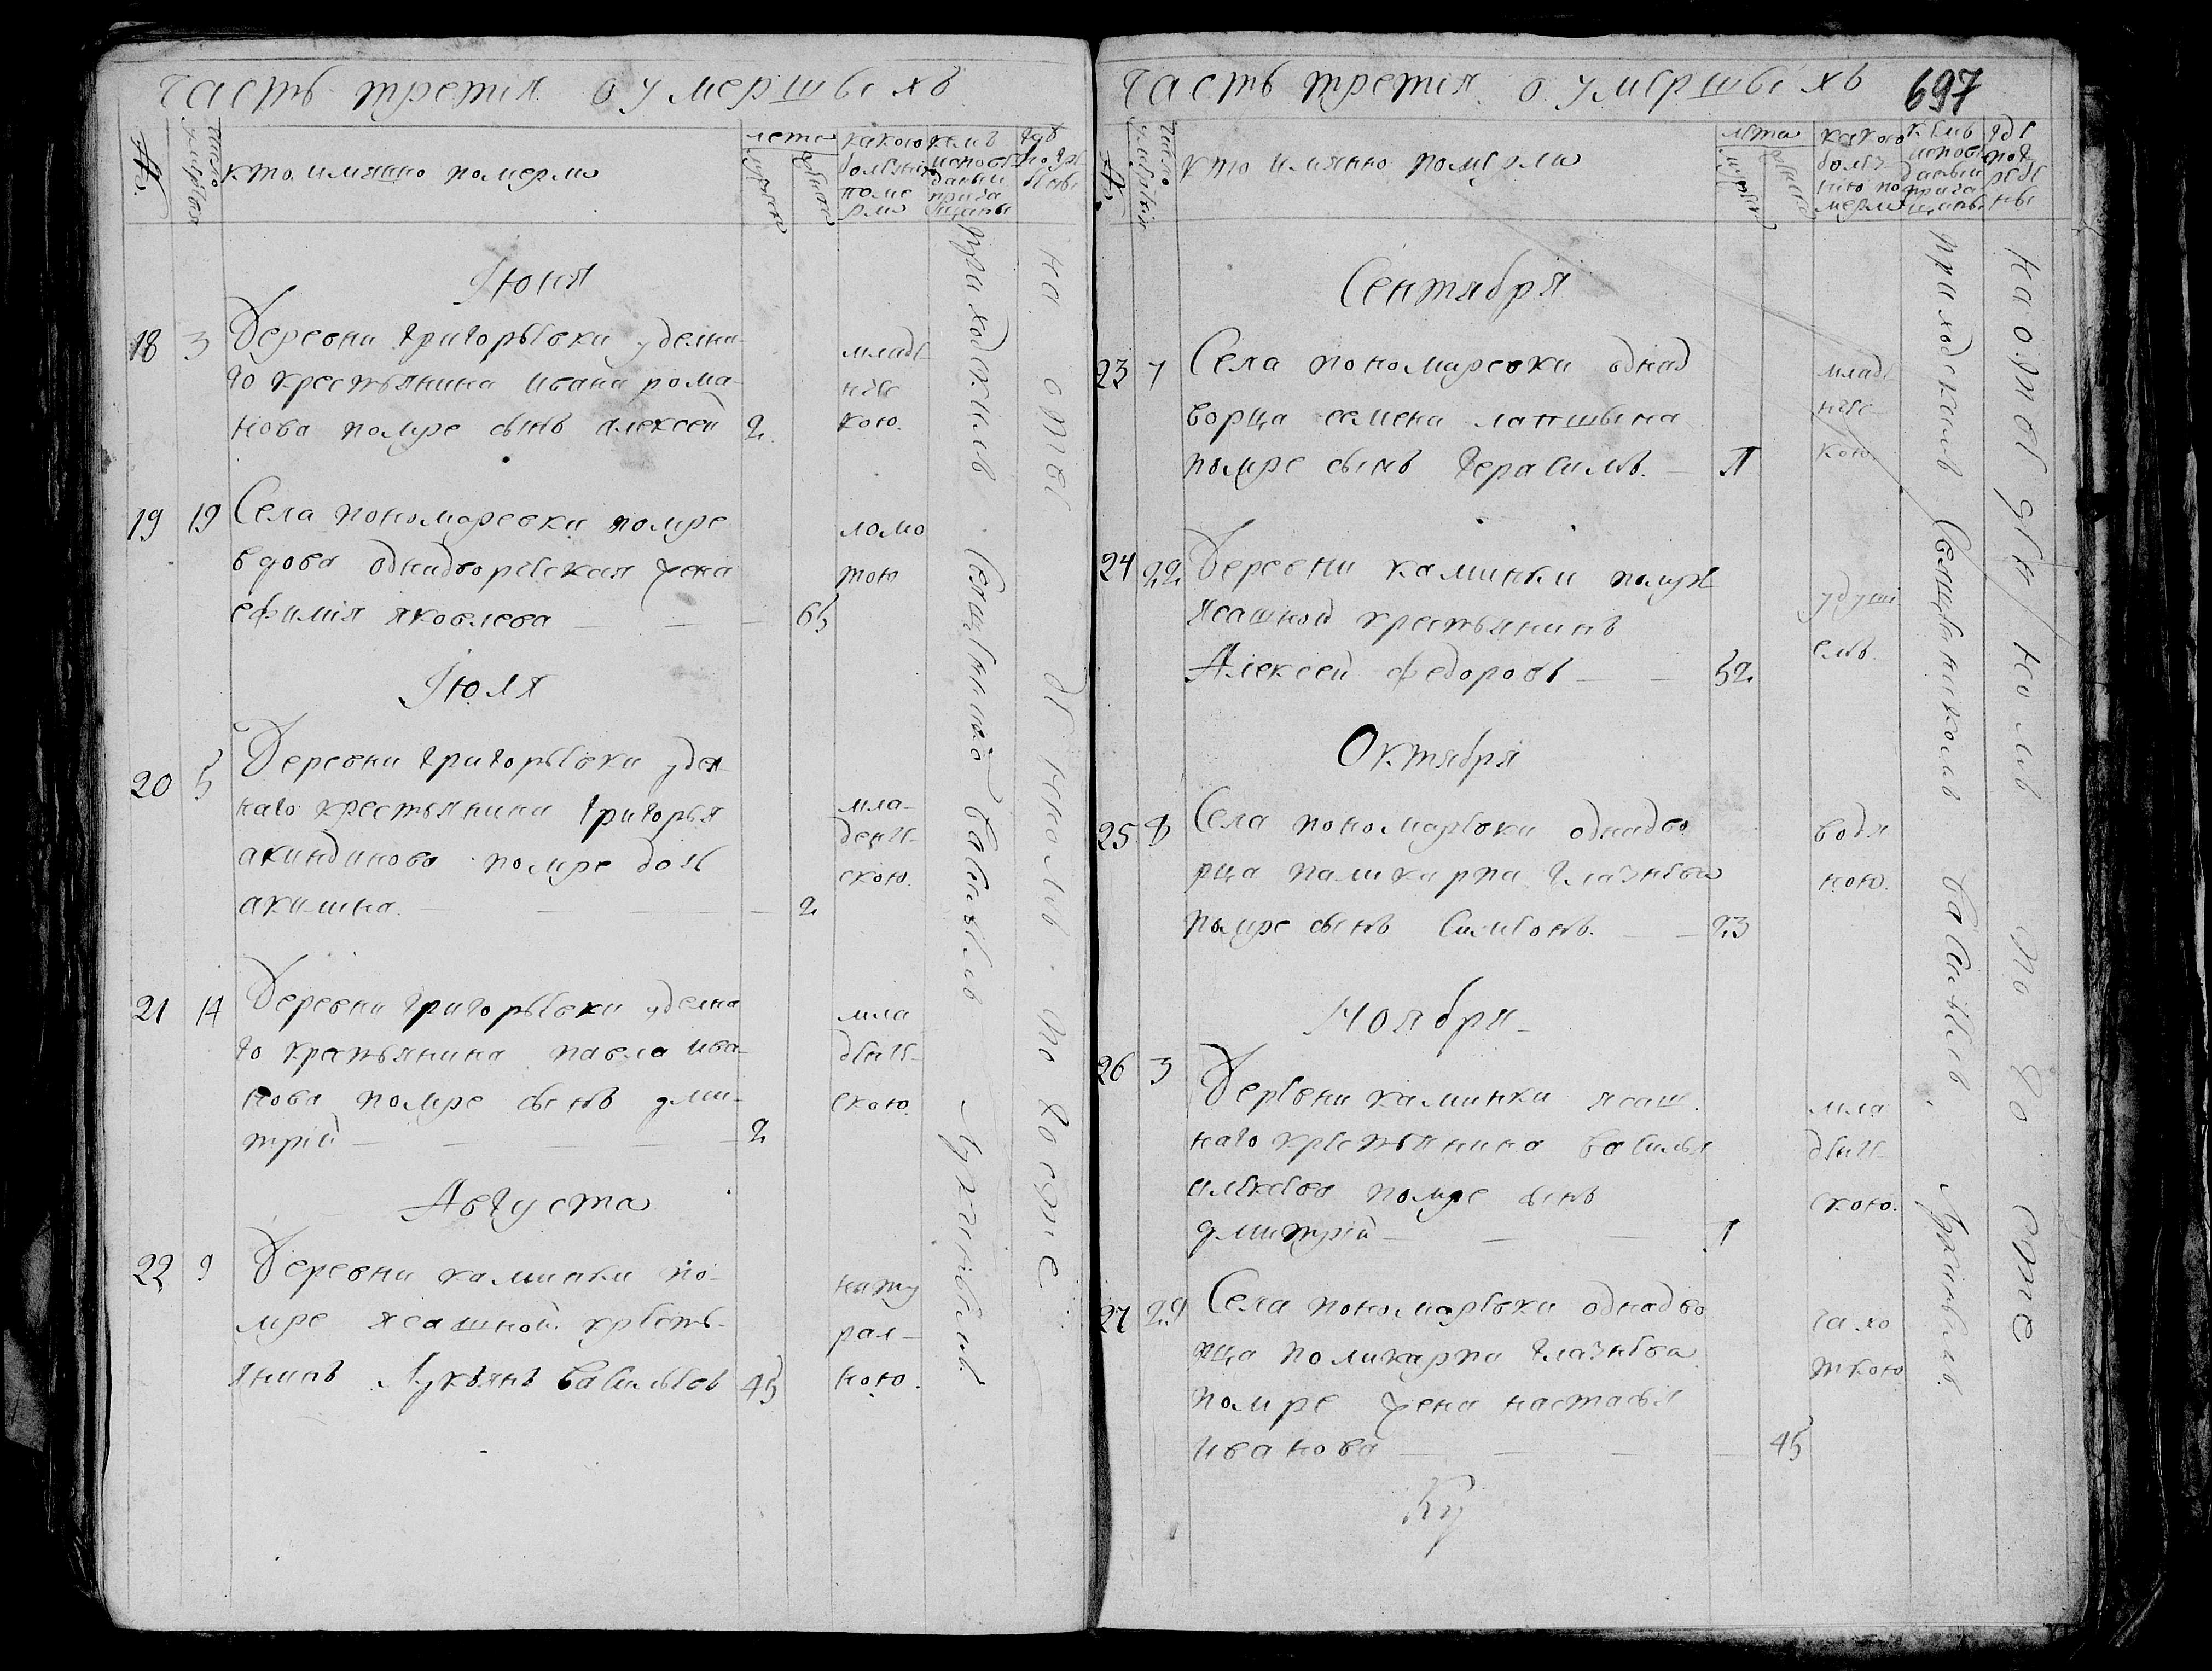 часть третія о умершыхъ
№.
число умертвія
кто имянно померли
лета
мужеск
женска
какою
болезнію
поме
рли
кемъ
исповѣ
даны и
прича
щаны
гдѣ
погре
бены
Іюня
18 3 Деревни григорьевки уделна-
го крестьянина ивана рома-
нова помре сынъ алексей 2.
младе
нчес
кою.
19 19 Села пономаревки помре
вдова однадворческая жена
ефимія яковлева — — — 65
ломо
тою
Іюля
20 5 Деревни григорьевки удел
наго крестьянина григорья
акиндинова помре дочь
акилина — — — — 2
мла-
денче-
скою.
21 14 Деревни григорьевки уделна
го крестьянина павла ива-
нова помре сынъ дми-
трій — — — — 2
мла
денче-
скою.
Августа
22 9 Деревни каминки по-
мре ясашной кресть-
янинъ Лукъянъ Васильевъ 45
нату
рал-
ною.
приходскимъ Священникомъ Василіемъ Лукинымъ.
на отведенномъ погосте
часть третія о умершыхъ 697
№.
число умертвія
кто имянно померли
лета
мужеск
женска
какою
болез
нію по
мерли
кемъ
испове
даны и
прича
щаны
где
пог
ребе
ны
Сентября
23 7 Села пономаревки однад
ворца семена лапшына
помре сынъ герасимъ. — 1
младе
нчес-
кою.
24 22 Деревни каминки помре
ясашной крестьянинъ
Алексей федоровъ — — 52
удуши
емъ.
Октября
25 8 Села пономаревки однадво
рца паликарпа глазнева
помре сынъ Симеонъ. — — 23
водя
ною.
Ноября
26 3 Деревни каминки ясаш
наго крестьянина василья
алексева помре сынъ
дмитрій — — — 1
мла
денче-
скою.
27 29 Села пономаревки однадво
рца поликарпа глазнева
помре жена настасья
иванова — — — — 45
чахо
ткою
приходскимъ Священникомъ Василіемъ Лукинымъ.
на отведенномъ погосте